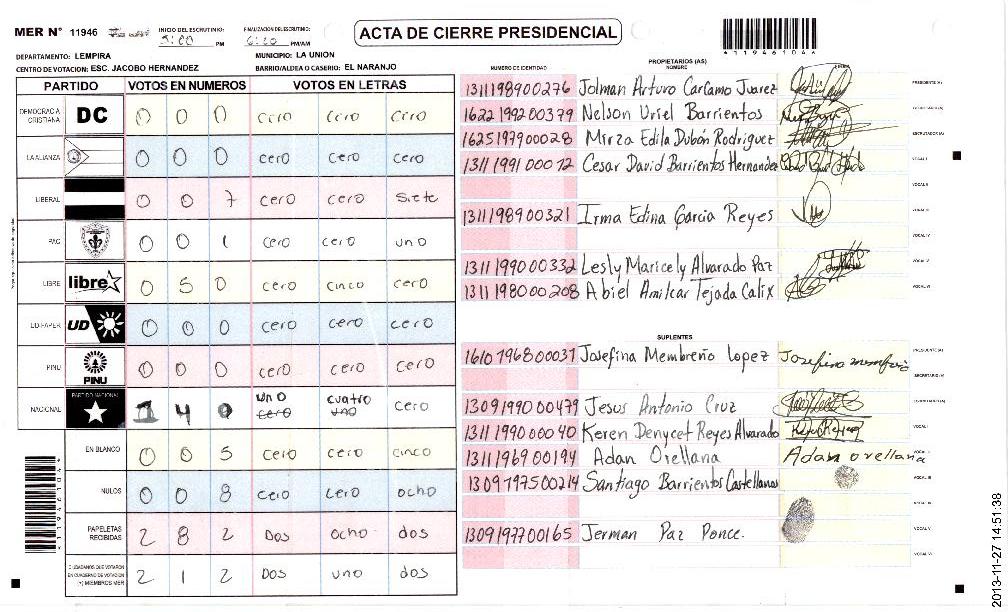 MER N° 11946
INICIO DEL ESCRUTINIO: 5:20 PM
FINALIZACION DEL ESCRUTINIO: PM/AM
ACTA DE CIERRE PRESIDENCIAL
*11946104*
DEPARTAMENTO: LEMPIRA
MUNICIPIO: LA UNION
CENTRO DE VOTACION: ESC. JACOBO HERNANDEZ
BARRIO/ALDEA O CASERIO: EL NARANJO
PARTIDO VOTOS EN NUMEROS VOTOS EN LETRAS
DEMOCRACIA CRISTIANA DC 0 0 0 cero cero cero
LA ALIANZA 0 0 0 cero cero cero
LIBERAL 0 0 7 cero cero siete
PAC 0 0 1 cero cero uno
LIBRE libre 0 5 0 cero cinco cero
UD-FAPER UD 0 0 0 cero cero cero
PINU PINU 0 0 0 cero cero cero
NACIONAL PARTIDO NACIONAL 1 4 0 uno cero cuatro uno cero
EN BLANCO 0 0 5 cero cero cinco
NULOS 0 0 8 cero cero ocho
PAPELETAS RECIBIDAS 2 8 2 Dos ocho dos
CIUDADANOS QUE VOTARON EN CUADERNO DE VOTACION (+) MIEMBROS MER 2 1 2 Dos uno dos
PROPIETARIOS (AS)
NUMERO DE IDENTIDAD NOMBRE
1311198900276 Jolman Arturo Carcamo Juarez PRESIDENTE(A)
1622199200379 Nelson Uriel Barrientos SECRETARIO(A)
1625197900028 Mirza Edila Dubón Rodriguez ESCRUTADOR(A)
1311199100072 Cesar David Barrientos Hernandez VOCAL I
VOCAL II
1311198900321 Irma Edina Garcia Reyes VOCAL III
VOCAL IV
1311199000332 Lesly Maricely Alvarado Paz VOCAL V
1311198000208 Abiel Amilcar Tejada Calix VOCAL VI
SUPLENTES
1610196800037 Josefina Membreño Lopez PRESIDENTE(A)
SECRETARIO(A)
1309199000479 Jesus Antonio Cruz ESCRUTADOR(A)
1311199000040 Keren Denycet Reyes Alvarado VOCAL I
1311196900194 Adan Orellana Adan orellana VOCAL II
1309197500214 Santiago Barrientos Castellanos VOCAL III
VOCAL IV
1309197700165 Jerman Paz Ponce. VOCAL V
VOCAL VI
*11946104*
2013-11-27 14:51:38